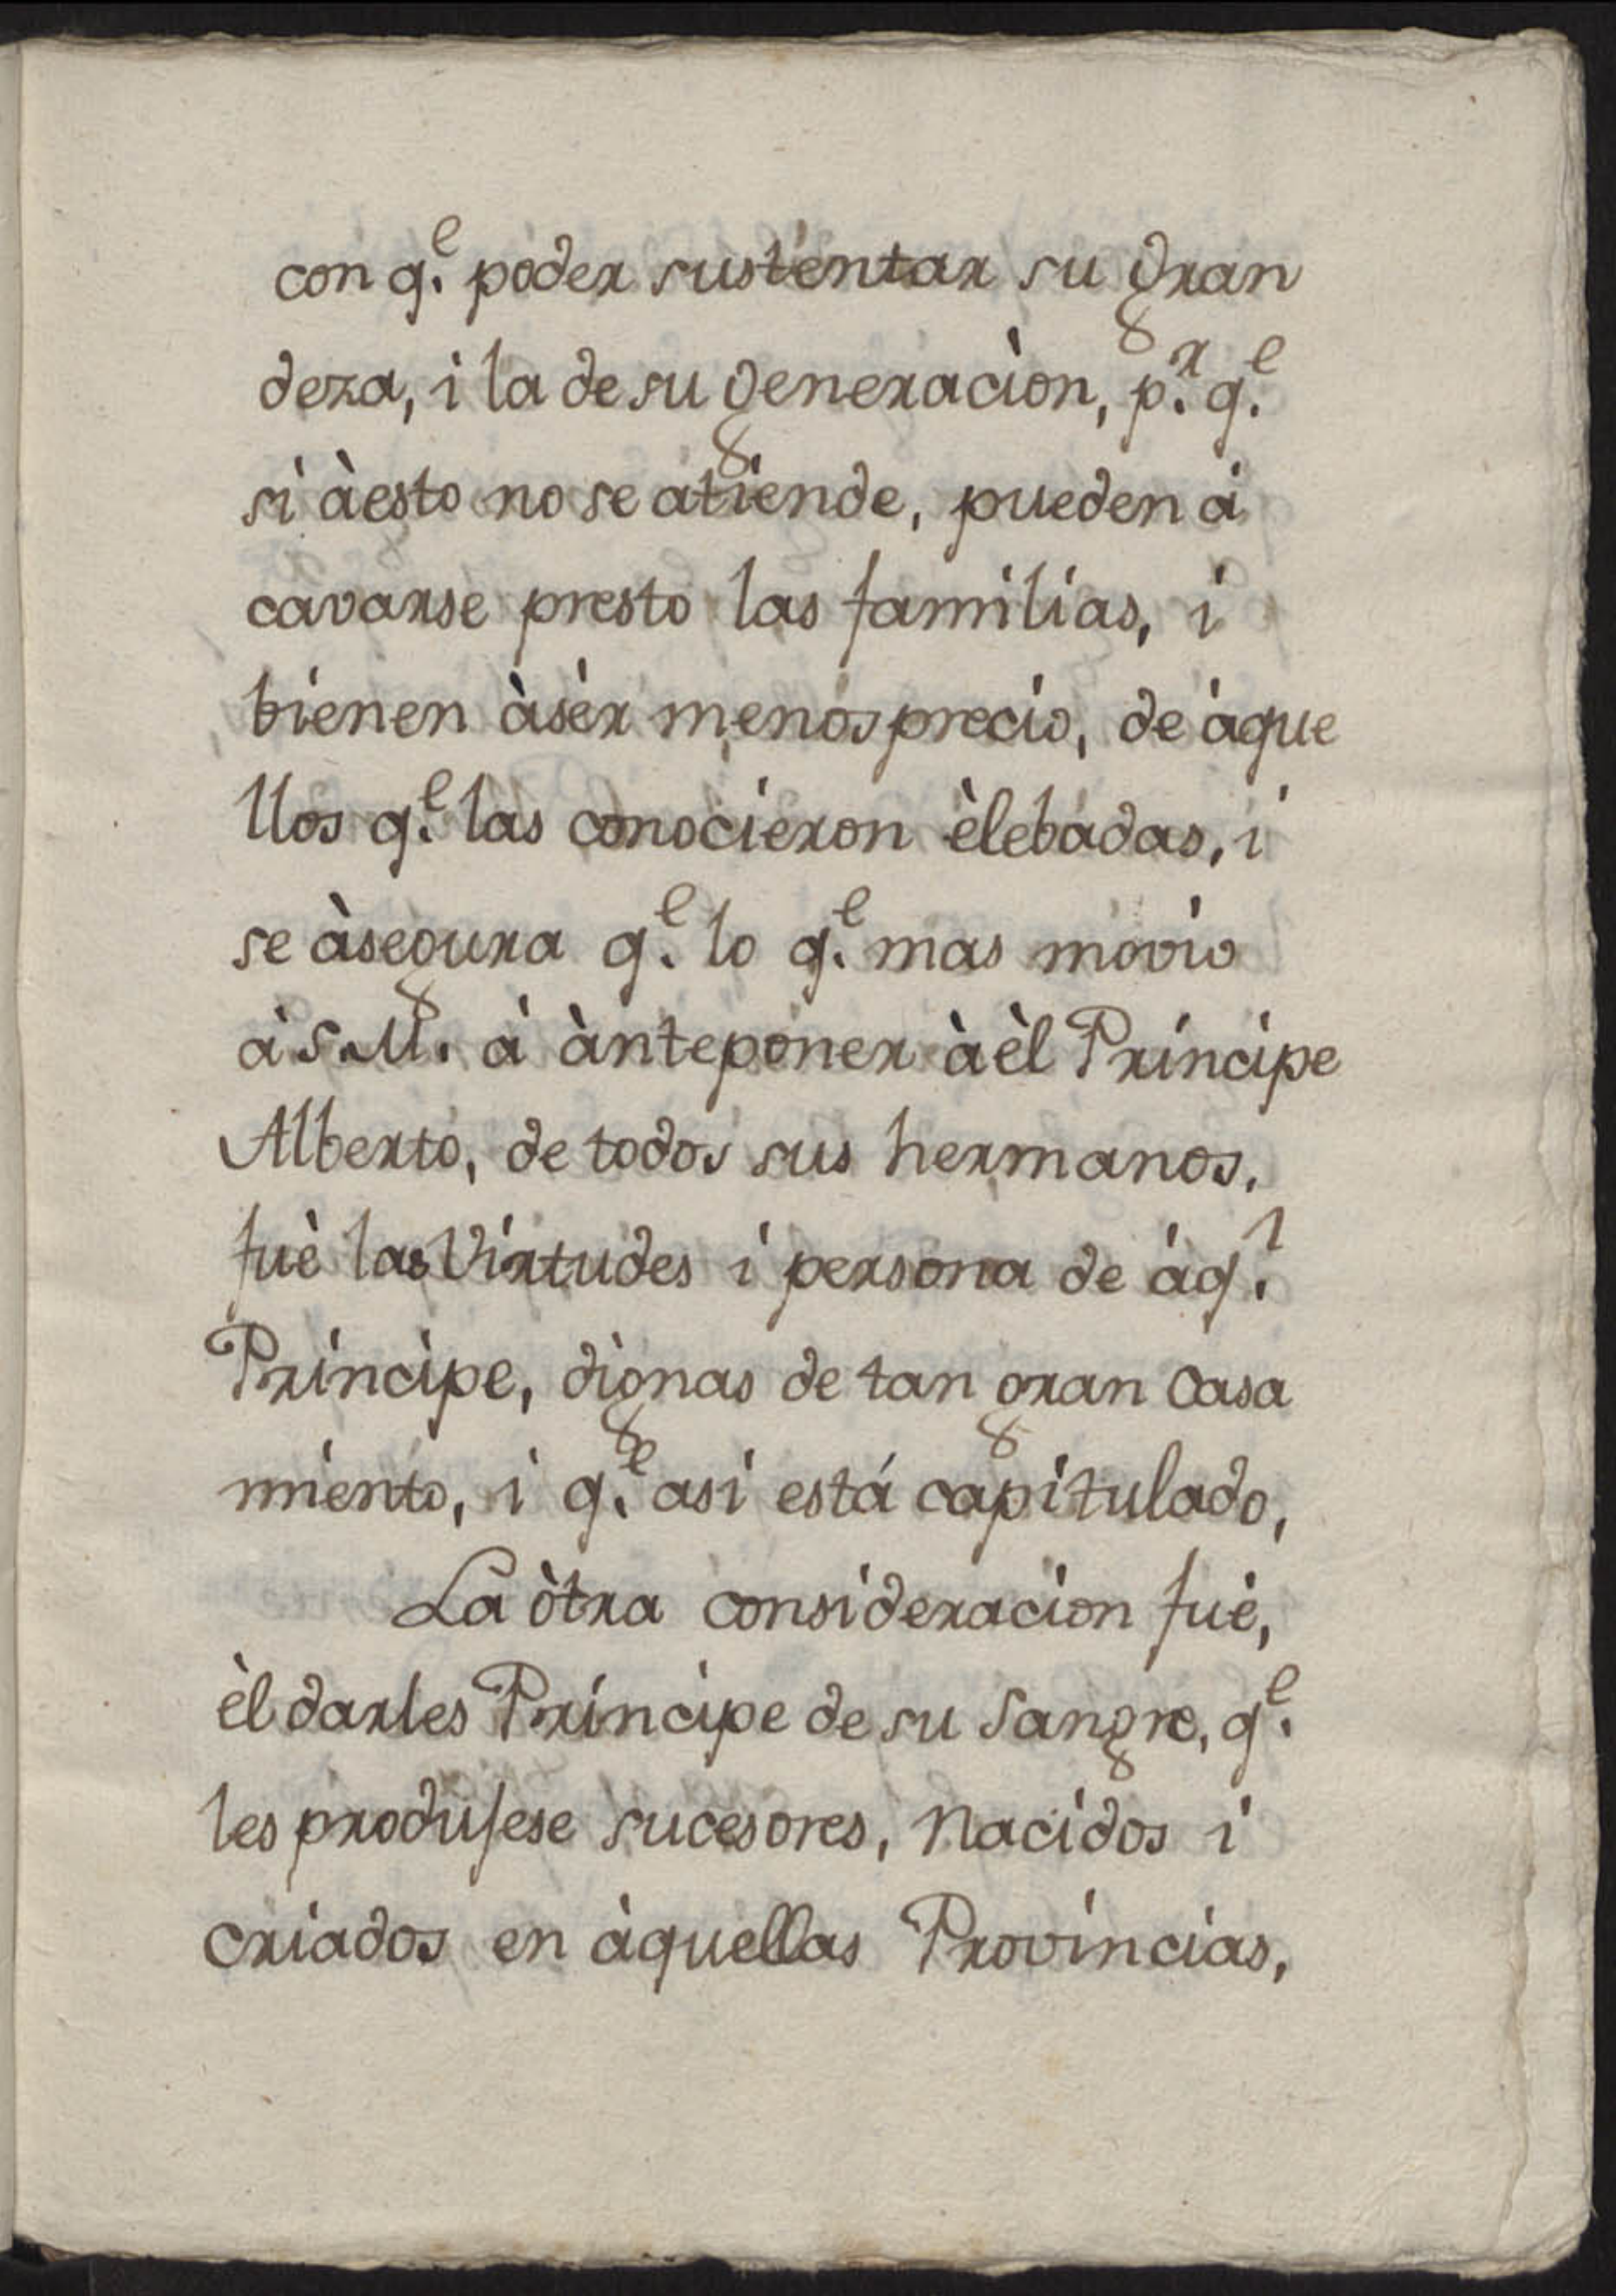 con q.^e poder sustentar su gran
deza, i la de su generaciòn, p.^r q.^e
si àesto no se atiende, pueden à
cavarse presto las familias, i
bienen àsèr menosprecio, de àque
llos q.^e las conocieron èlebadas, i
se àsegura q.^e lo q.^e mas movio
à S.M. à ànteponer àèl Principe
Alberto, de todos sus hermanos.
fuè las Virtudes i persona de àq.^l
Principe, dignas de tan gran Casa
miento, i q.^e asi està capitulado,
La òtra consideracion fuè,
èl darles Principe de su Sangre, q.^e
les produjese sucesores, Nacidos i
criados en àquellas Provincias,